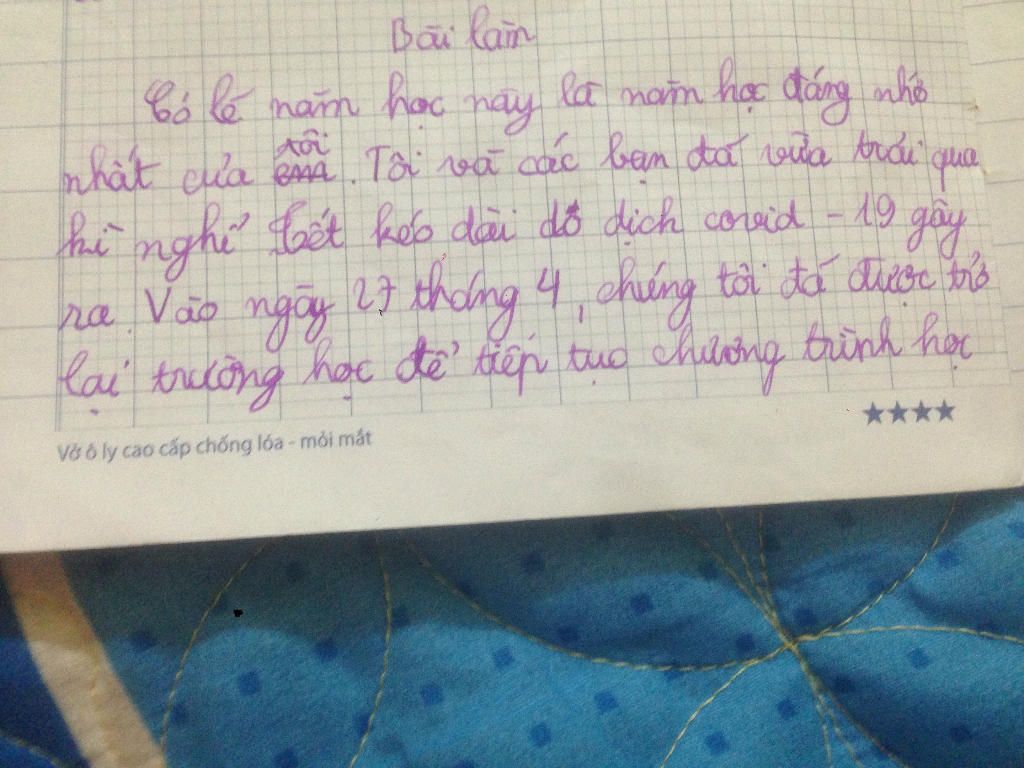 Bài làm
Có lẽ năm học này là năm học đáng nhớ
nhất của tôi. Tôi và các bạn đã vừa trải qua
kì nghỉ tết kéo dài do dịch covid - 19 gây
ra. Vào ngày 27 tháng 4, chúng tôi đã được trở
lại trường học để tiếp tục chương trình học
★★★★
Vở ô ly cao cấp chống lóa - mỏi mắt